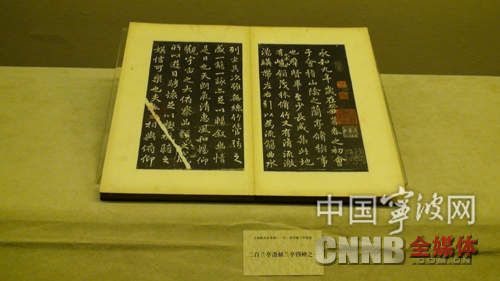 永和九年歲在癸丑暮春之初會
于會稽山陰之蘭亭脩禊事
也群賢畢至少長咸集此地
有峻領茂林脩竹又有清流激
湍暎帶左右引以為流觴曲水
列坐其次雖無絲竹管弦之
盛一觴一詠亦足以暢敘幽情
是日也天朗氣清惠風和暢仰
觀宇宙之大俯察品類之盛
所以遊目騁懷足以極視聽之
娛信可樂也夫人之相與俯仰
二百兰亭斋刻兰亭四种之一
中国宁波网
CNNB 全媒体